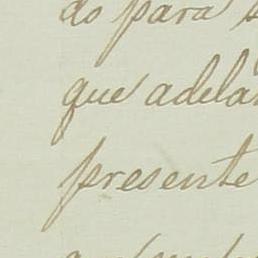 do para
que adela
presente